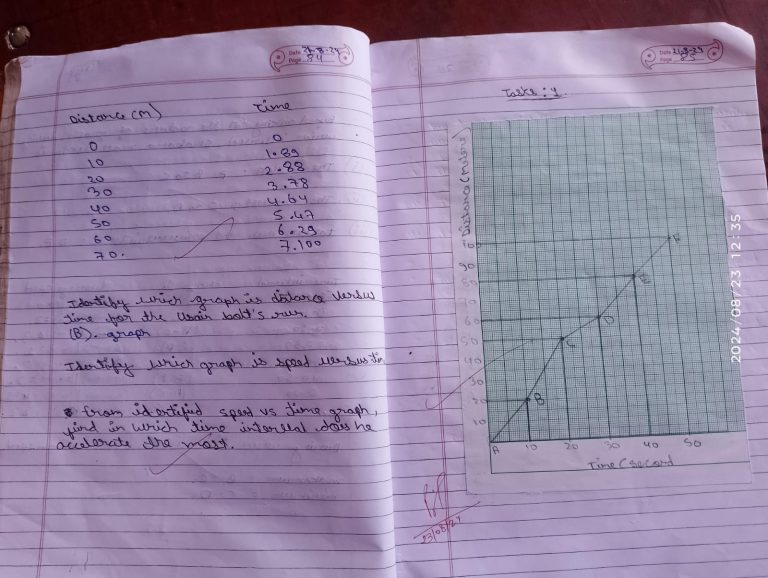 Date 21-8-24
Page 84
Distance (M) Time
0 0
10 1.89
20 2.88
30 3.78
40 4.64
50 5.47
60 6.29
70. 7.100
Identify which graph is distance versus
time for the Usain bolt's run.
(B). graph
Identify which graph is speed versus tim
from identified speed vs time graph,
find in which time interval does he
accelerate the most.
Date 21-8-24
Page 85
Tasks : 4.
Distance (Meters)
90
80
60
50
40
30
20
10
A
B
C
D
E
F
10 20 30 40 50
Time (second
23/08/24
2024/08/23 12:35